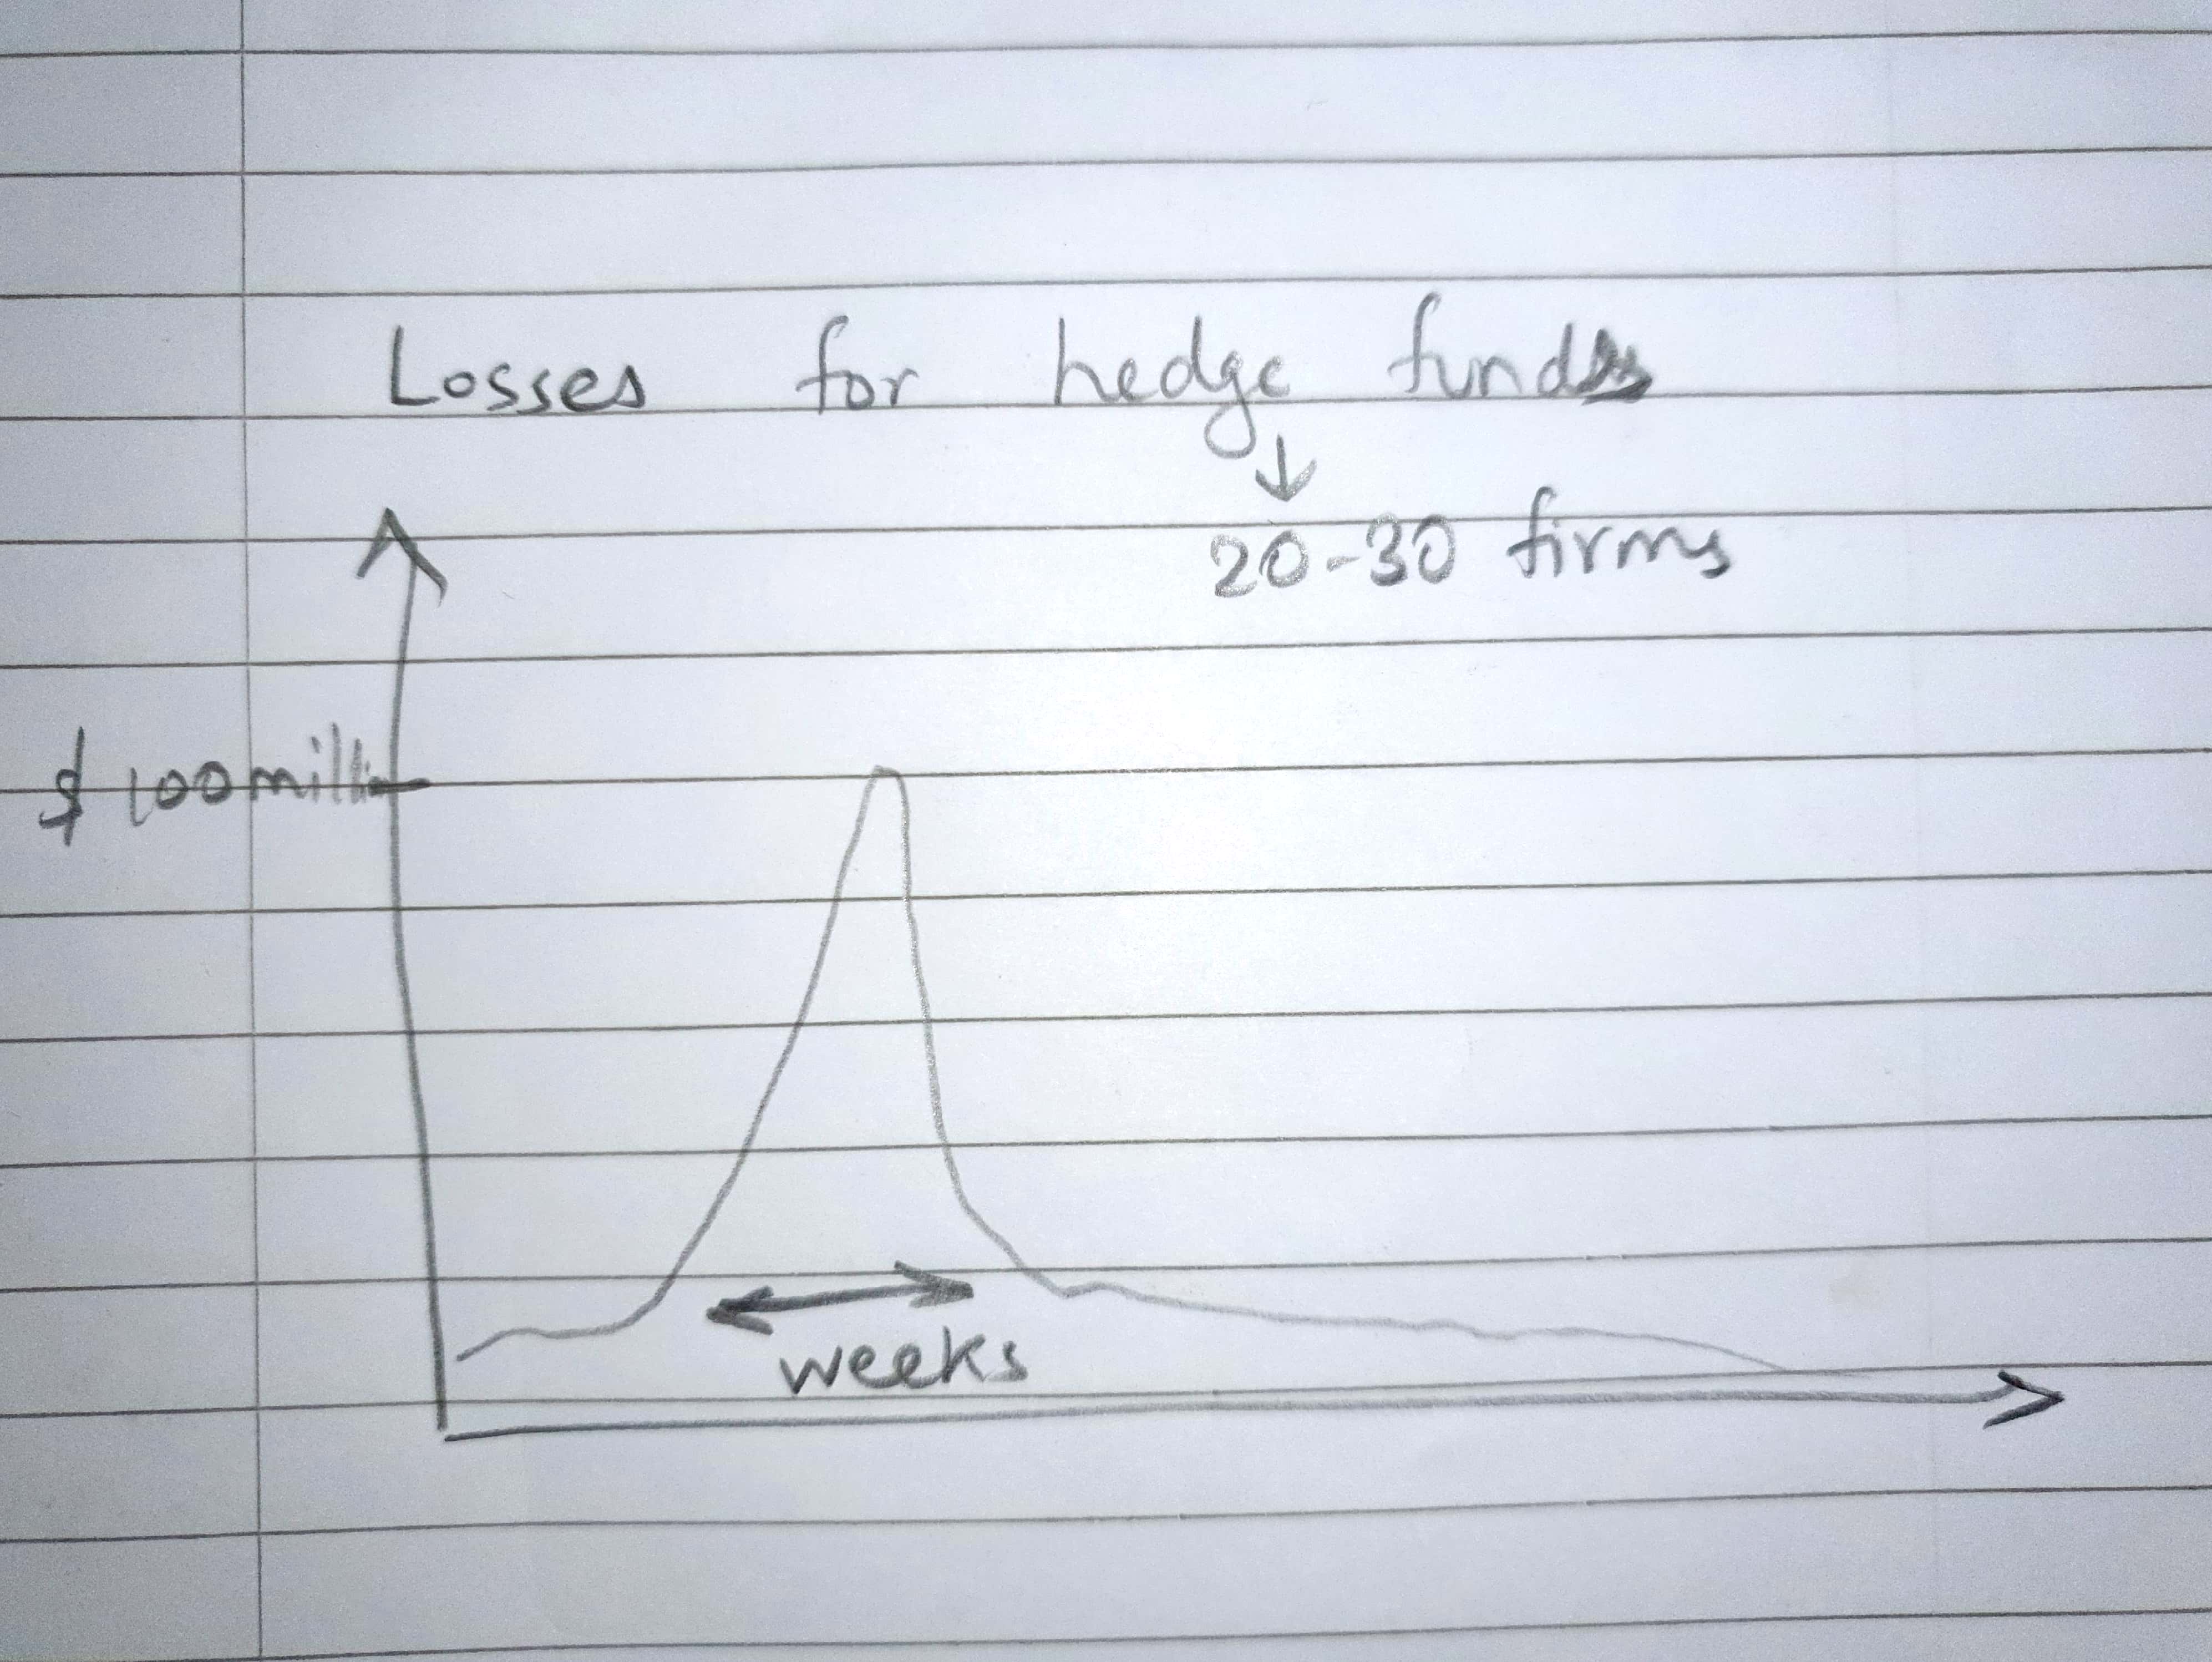 Losses for hedge funds
20-30 firms
$ 100 milli
weeks